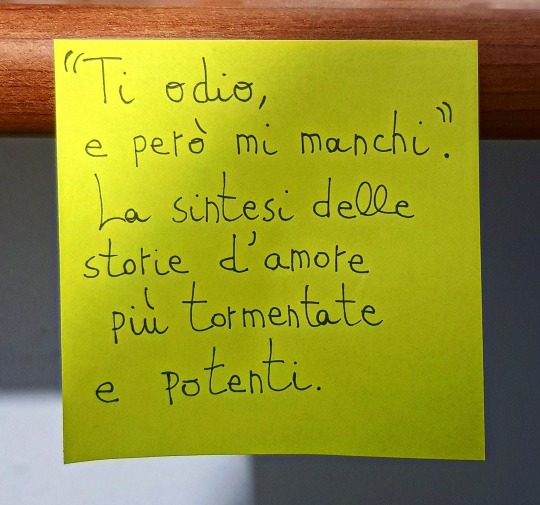 "Ti odio,
e però mi manchi".
La sintesi delle
storie d'amore
più tormentate
e potenti.